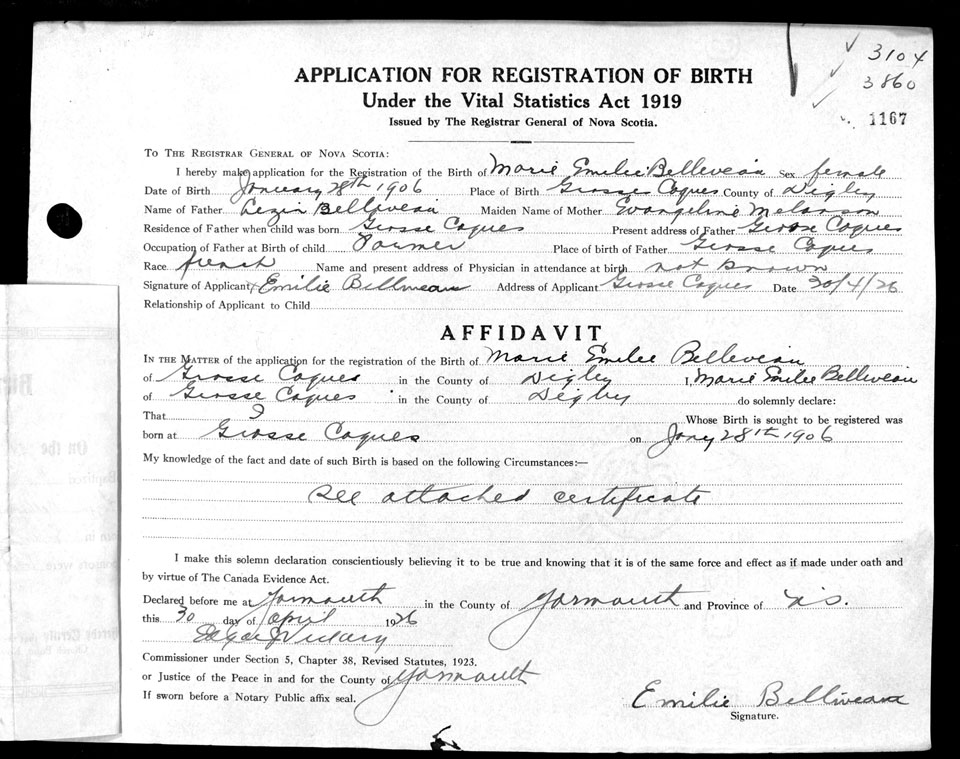 3104
3860
1167
APPLICATION FOR REGISTRATION OF BIRTH
Under the Vital Statistics Act 1919
Issued by The Registrar General of Nova Scotia.
TO THE REGISTRAR GENERAL OF NOVA SCOTIA:
I hereby make application for the Registration of the Birth of Marie Emilie Belleveau Sex female
Date of Birth January 28th 1906 Place of Birth Grosses Coques County of Digby
Name of Father Lezin Belliveau Maiden Name of Mother Evangeline Melanson
Residence of Father when child was born Grosse Coques Present address of Father Grosse Coques
Occupation of Father at Birth of child Farmer Place of birth of Father Grosse Coques
Race french Name and present address of Physician in attendance at birth not known
Signature of Applicant Emilie Belliveau Address of Applicant Grosse Coques Date 30/4/26
Relationship of Applicant to Child
AFFIDAVIT
IN THE MATTER of the application for the registration of the Birth of Marie Emilee Belleveau
of Grosse Coques in the County of Digby I, Marie Emilie Belliveau
of Grosse Coques in the County of Digby do solemnly declare:
That I Whose Birth is sought to be registered was
born at Grosse Coques on Jany 28th 1906
My knowledge of the fact and date of such Birth is based on the following Circumstances:—
see attached certificate
I make this solemn declaration conscientiously believing it to be true and knowing that it is of the same force and effect as if made under oath and
by virtue of The Canada Evidence Act.
Declared before me at Yarmouth in the County of Yarmouth and Province of N.S.
this 30 day of April 1926
Commissioner under Section 5, Chapter 38, Revised Statutes, 1923.
or Justice of the Peace in and for the County of Yarmouth
If sworn before a Notary Public affix seal.
Emilie Belliveau
Signature.